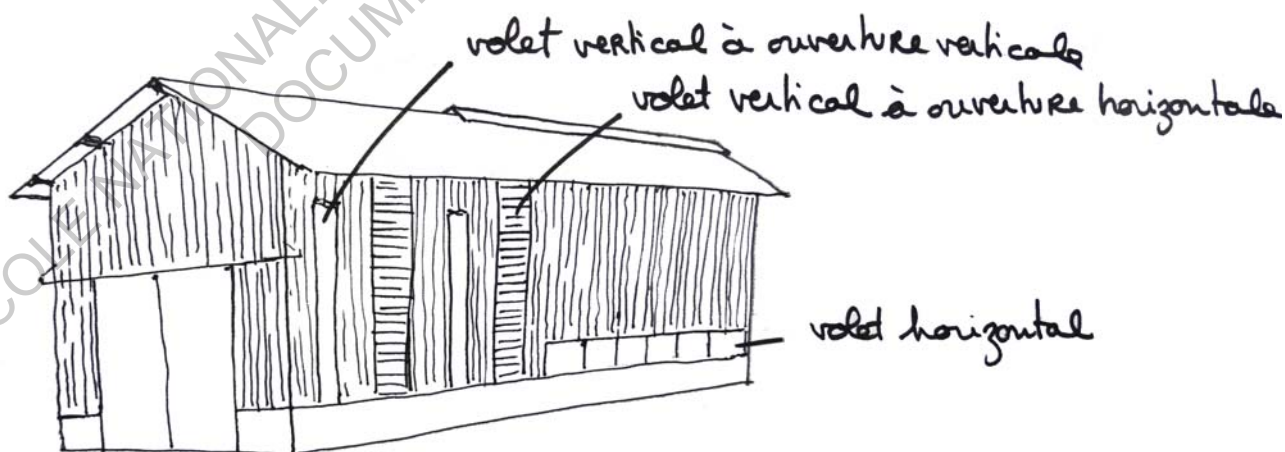 volet vertical à ouverture verticale
volet vertical à ouverture horizontale
volet horizontal
COLE NATIONAL
DOCUM